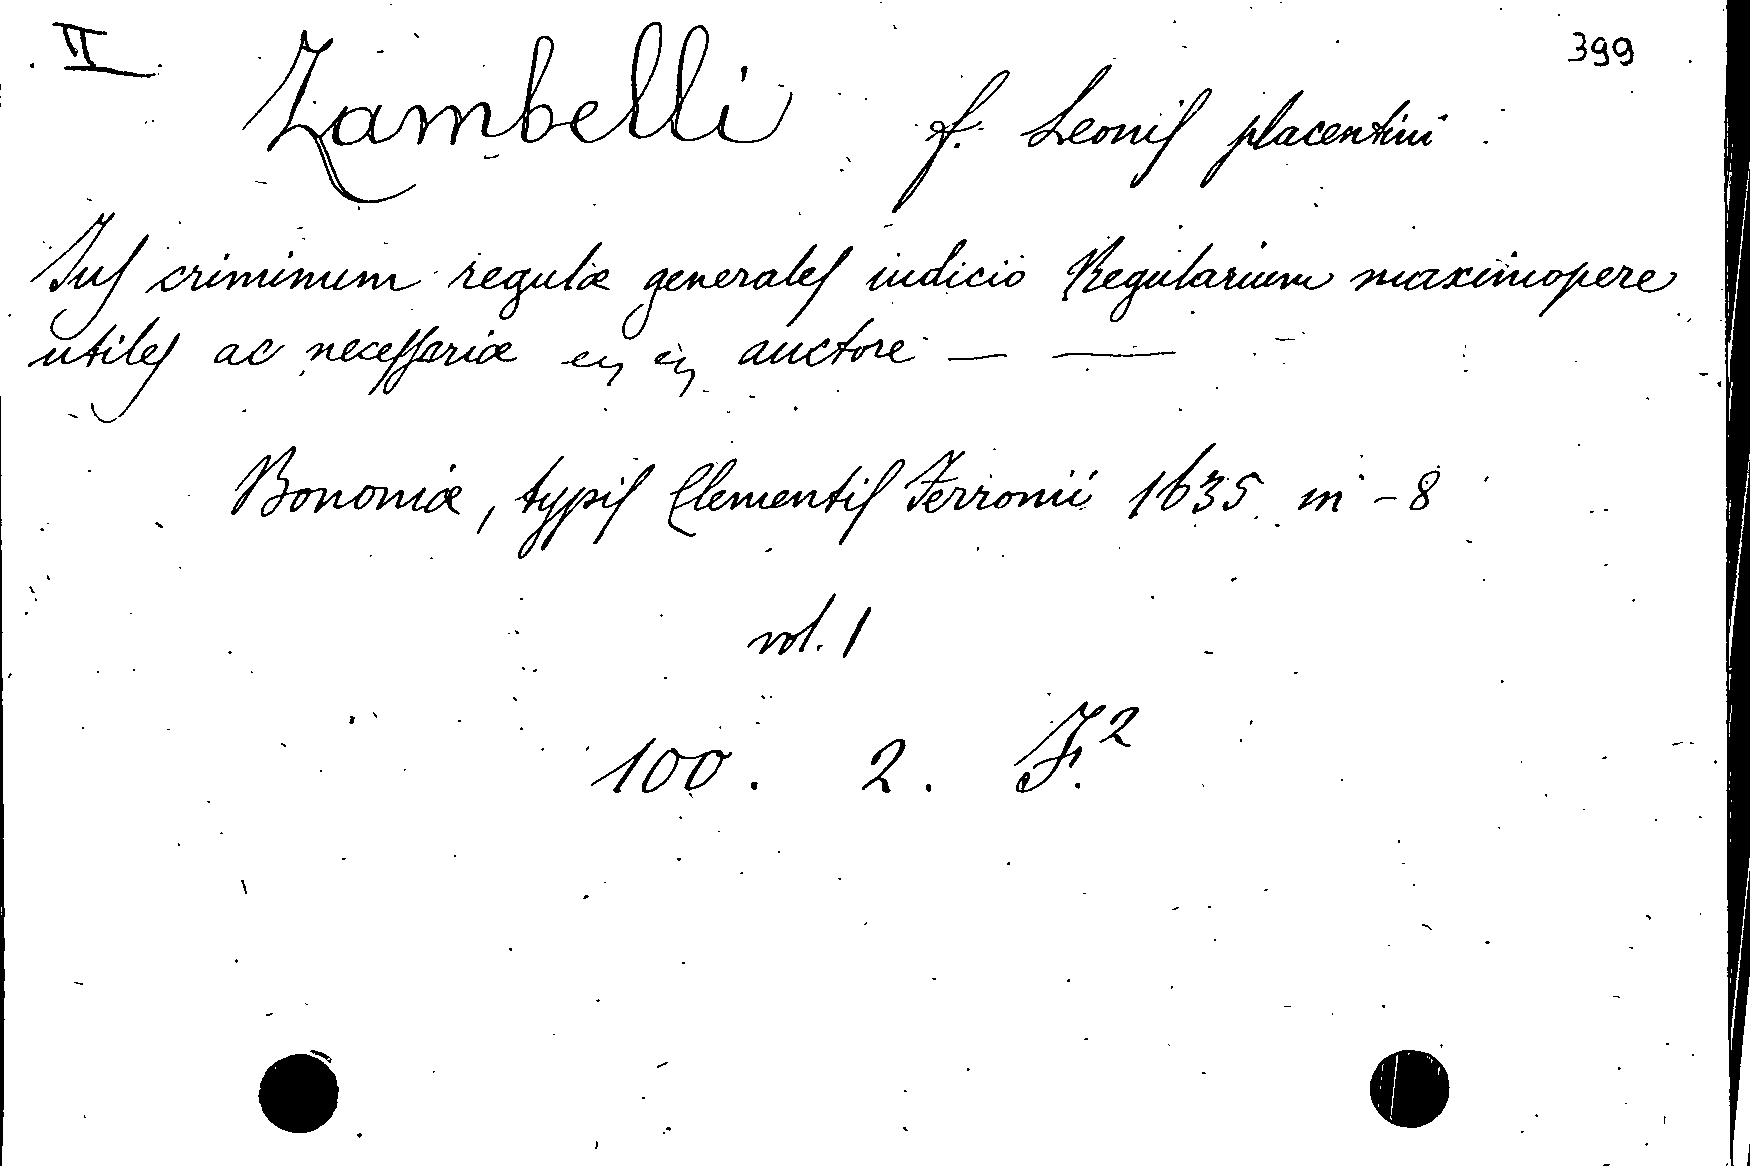 II
399
Zambelli f. Leonis placentini
Jus criminum regulæ generales iudicio Regularium maximopere
utiles ac necessariæ auctore — —
Bononiæ, typis Clementis Ferronii 1635 in -8
vol. 1
100. 2. F.²